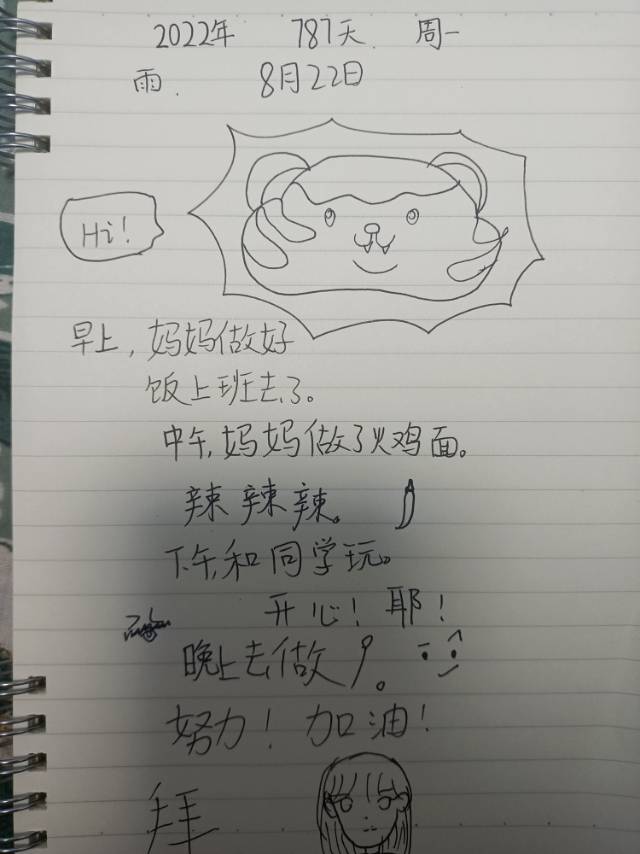 2022年 787天 周一
雨. 8月22日
Hi!
早上,妈妈做好
饭上班去了。
中午,妈妈做了火鸡面。
辣辣辣。
下午,和同学玩。
开心!耶!
晚上去做。
努力!加油!
拜